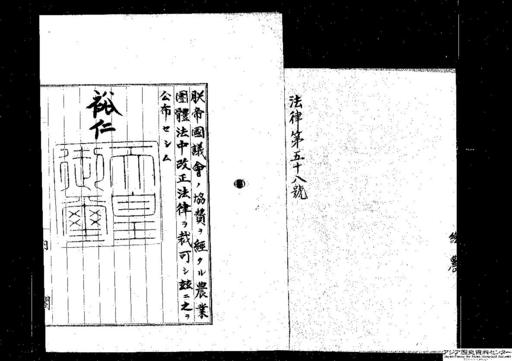 法律第五十八號
朕帝國議會ノ協賛ヲ經タル農業
團體法中改正法律ヲ裁可シ玆ニ之ヲ
公布セシム
裕仁
天皇
御璽
アジア歴史資料センター